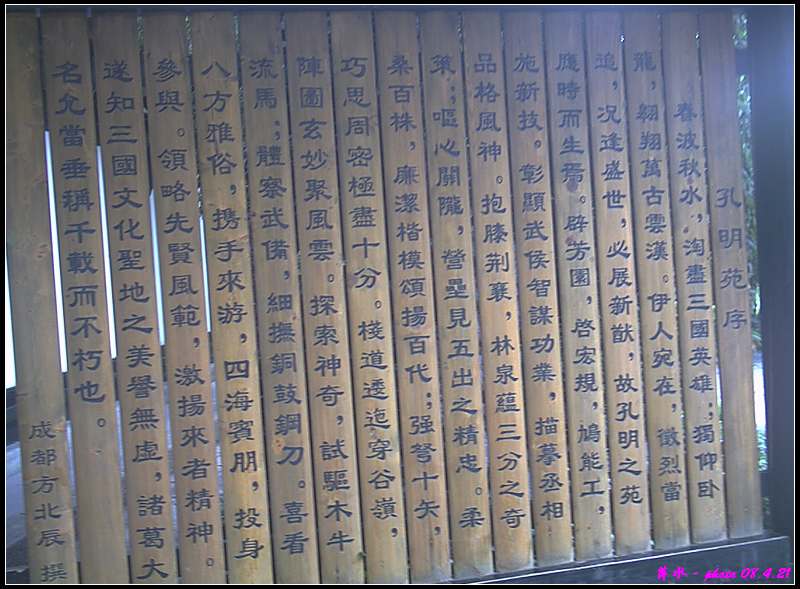 孔明苑序
春波秋水，淘盡三國英雄；獨仰卧
龍，翱翔萬古雲漢。伊人宛在，徽烈當
追，况逢盛世，必展新猷，故孔明之苑
應時而生焉。辟芳園，啓宏規，鳩能工，
施新技。彰顯武侯智謀功業，描摹丞相
品格風神。抱膝荆襄，林泉蘊三分之奇
策；嘔心關隴，營壘見五出之精忠。柔
桑百株，廉潔楷模頌揚百代；强弩十矢，
巧思周密極盡十分。棧道逶迤穿谷嶺，
陣圖玄妙聚風雲。探索神奇，試驅木牛
流馬；體察武備，細撫銅鼓鋼刀。喜看
八方雅俗，携手來游，四海賓朋，投身
參與。領略先賢風範，激揚來者精神。
遂知三國文化聖地之美譽無虚，諸葛大
名允當垂稱千載而不朽也。
成都方北辰 撰
萍水 - photo 08.4.21